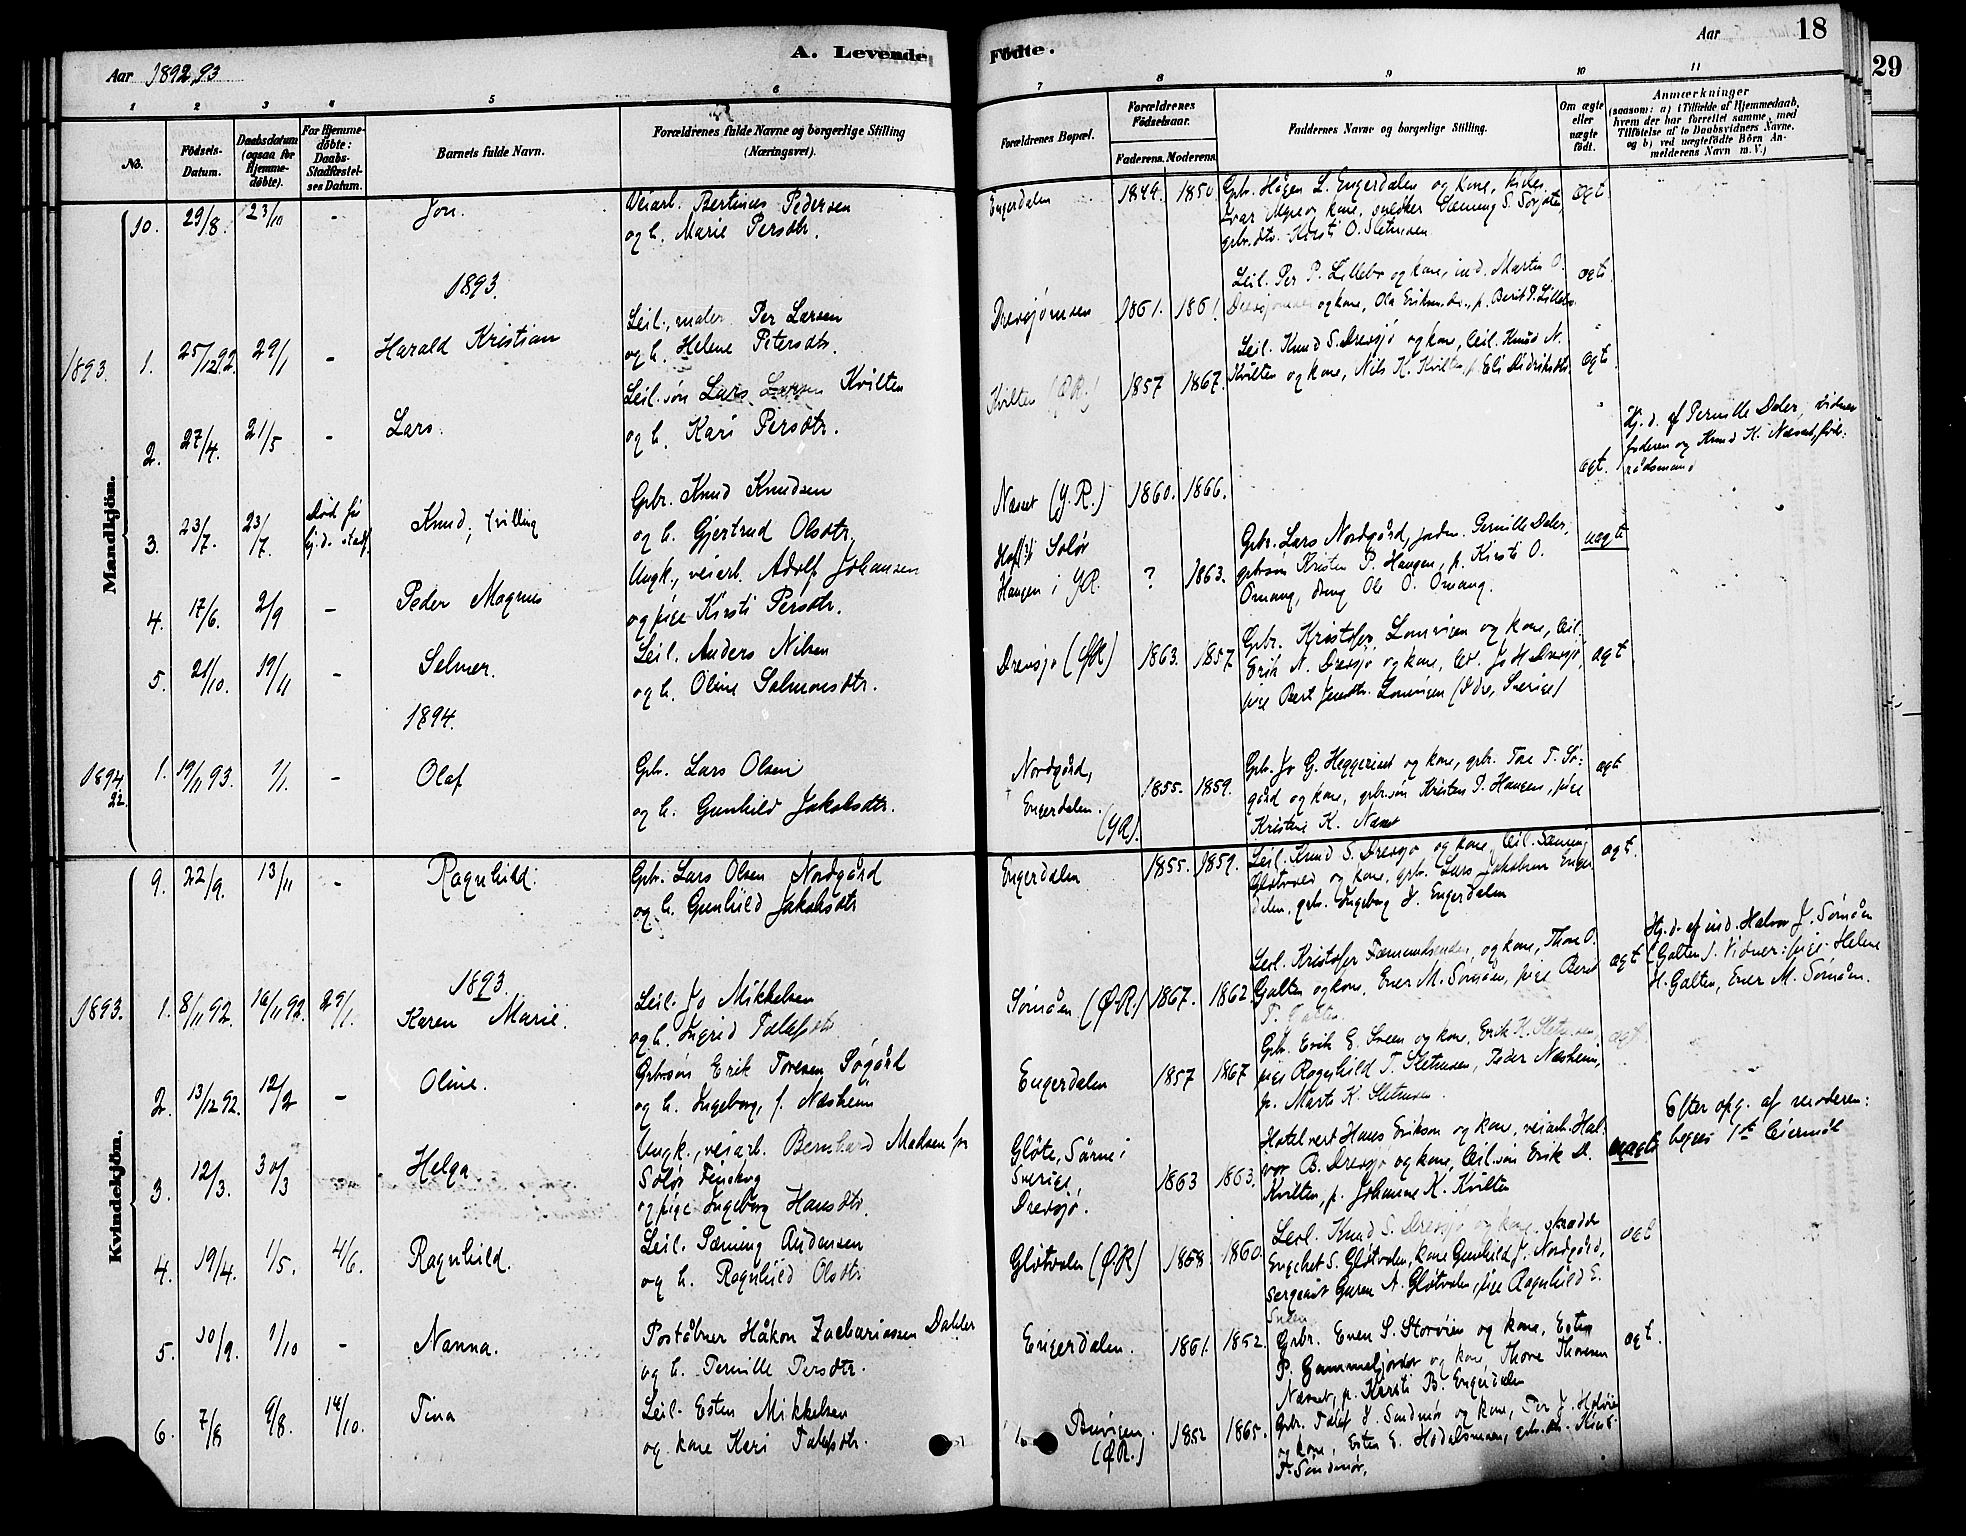 Aar 1892,93
A. Levende
Fødte.
Aar 18
29
1 2 3 4 5 6 7 8 9 10 11
No.
Fødsels-
Datum.
Daabsdatum
(ogsaa for
Hjemme-
døbte).
For Hjemme-
døbte:
Daabs-
Stadfæstel-
ses Datum.
Barnets fulde Navn.
Forældrenes fulde Navne og borgerlige Stilling
(Næringsvei).
Forældrenes Bopæl.
Forældrenes
Fødselsaar.
Faderens. Moderens.
Faddernes Navne og borgerlige Stilling.
Om ægte
eller
uægte
født.
Anmærkninger
(saasom: a) i Tilfælde af Hjemmedaab,
hvem der har forrettet samme, med
Tilføielse af to Daabsvidners Navne,
og b) ved uægtefødte Börn An-
melderens Navn m. V.)
Mandkjön.
10. 29/8. 23/10 - Jon.
Veiarb. Bertinus Pedersen
og h. Marie Persdtr.
Engerdalen 1849. 1850.
Gbr. Hågen L. Engerdalen og kone,
Ivar Myre og kone, snedker Sæming S.
gbr.dtr. Kirsti O. Sletmoen
ægt
1893.
1893. 1. 25/12 92. 29/1 - Harald Kristian
Leil., maler Per Larsen
og h. Helene Petersdtr.
Drevsjømoen 1861. 1861
Leil. Per P. Lillebo og kone, ind. Martin O.
og kone, Ola Eriksen p. Berit P. Lillebo
ægt
2. 27/4. 21/5 - Lars.
Leil. søn Lars Larsen Kvilten
og h. Kari Persdtr.
Kvilten (Ø.R.) 1857 1867.
Leil. Knud S. Drevsjø og kone, leil. Knud N.
Kvilten og kone, Nils K. Kvilten, p. Eli Didriksdtr.
ægt
3. 23/7. 23/7. Død før hj.d. stadf. Knud, tvilling
Gbr. Knud Knudsen
og h. Gjertrud Olsdtr.
Næset (Y.R.) 1860. 1866.
ægt.
Hj.d. af Pernille Daler, vidner
faderen og Knud K. Næset, føde-
rådsmand
4. 17/6. 2/9 - Peder Magnus
Ungk., veiarb. Adolf Johansen
og pige Kirsti Persdtr.
Hof i Solør
Haugen i Y.R. ? 1863.
Gbr. Lars Nordgård, jordm. Pernille Daler,
gbrsøn Kristen P. Haugen, p. Kirsti O.
Omang, dreng Ole O. Omang.
uægte
5. 21/10. 19/11 - Selmer.
Leil. Anders Nilsen
og h. Oline Salmonsdtr.
Drevsjø (Ø.R) 1863. 1857
Gbr. Kristofer Lomvigen og kone, leil.
Erik N. Drevsjø og kone, leil. Jo H Drevsjø,
pige Beret Jensdtr. Lomvigen (Idre, Sverige)
ægt
1894.
1894. 22. 1. 19/11 93. 1/1 - Olaf
Gbr. Lars Olsen
og h. Gunhild Jakobsdtr.
Nordgård,
Engerdalen. (Y.R). 1855. 1859.
Gbr. Jo G. Heggeriset og kone, gbr. Tore T. Sø-
gård og kone, gbr.søn Kristen P. Haugen, pige
Kristine K. Næset
ægt
Kvindekjön.
9. 22/9. 13/11 - Ragnhild.
Gbr. Lars Olsen Nordgård
og h. Gunhild Jakobsdtr
Engerdalen 1855. 1859.
Leil. Knud S. Drevsjø og kone, leil. Sæming
Gløtvold og kone, gbr. Lars Jakobsen Enger
dalen, gbr. Ingeborg J. Engerdalen
ægt.
1893.
1893. 1. 8/11 92. 16/11 92. 29/1. Karen Marie.
Leil. Jo Mikkelsen
og h. Ingrid Tolefsdtr
Sømåen (Ø.R.) 1867. 1862
Leil. Kristofer Femundsenden og kone, Thore O.
Galten og kone, Ener M. Sømåen, pige Beret
T. Galten.
ægt
Hj.d. af ind. Halvor J. Sømåen
(Galten). Vidner: pige Helene
H. Galten, Ener M. Sømåen.
2. 13/12 92. 12/2 - Oline.
Gbrsøn Erik Toresen Søgård
og h. Ingeborg, f. Næsheim
Engerdalen 1857 1867
Gbr. Erik E. Sveen og kone, Erik K. Sletmoen,
pige Ragnhild T. Sletmoen, Peder Næsheim,
p. Marte K. Sletmoen.
ægt
3. 12/3. 30/3 Helga
Ungk., veiarb. Bernhard Madsen fra
Solør Finskog
og pige Ingeborg Hansdtr.
Gløte, Särna i
Sverige,
Drevsjø. 1863 1863.
Hotelvert Hans Erikson og kone, veiarb. Hal-
vor B. Drevsjø og kone, leil. søn Erik D.
Kvilten, p. Johanne K. Kvilten
uægte
Efter opg. af moderen:
begges 1ste leiermål
4. 19/4. 1/5. 4/6. Ragnhild.
Leil. Sæming Andersen
og h. Ragnhild Olsdtr
Gløtvolen (Ø.R) 1858 1860
Leil. Knud S. Drevsjø og kone, skrædder
Engebret S. Gløtvolen, kone Gunhild J. Nordgård,
sergeant Guren A. Gløtvolen, pige Ragnhild E.
Sveen
ægt
5. 30/9. 1/10 - Nanna.
Poståbner Håkon Zachariassen Dahler
og h. Pernille Persdtr.
Engerdalen. 1861. 1852.
Gbr. Even S. Storvien og kone, Esten
P. Gammeljordet og kone, Thore Thoresen
Næset, p. Kirsti B. Engerdalen
ægt.
6. 7/8 9/8. 14/10. Tina
Leil. Esten Mikkelsen
og kone Kari Tolefsdtr.
Burvigen.
(Ø.R.) 1852 1865.
Gbr. Tolef J. Sundmør og kone, Tor J.
og kone, Esten E.
T. Sundmør.